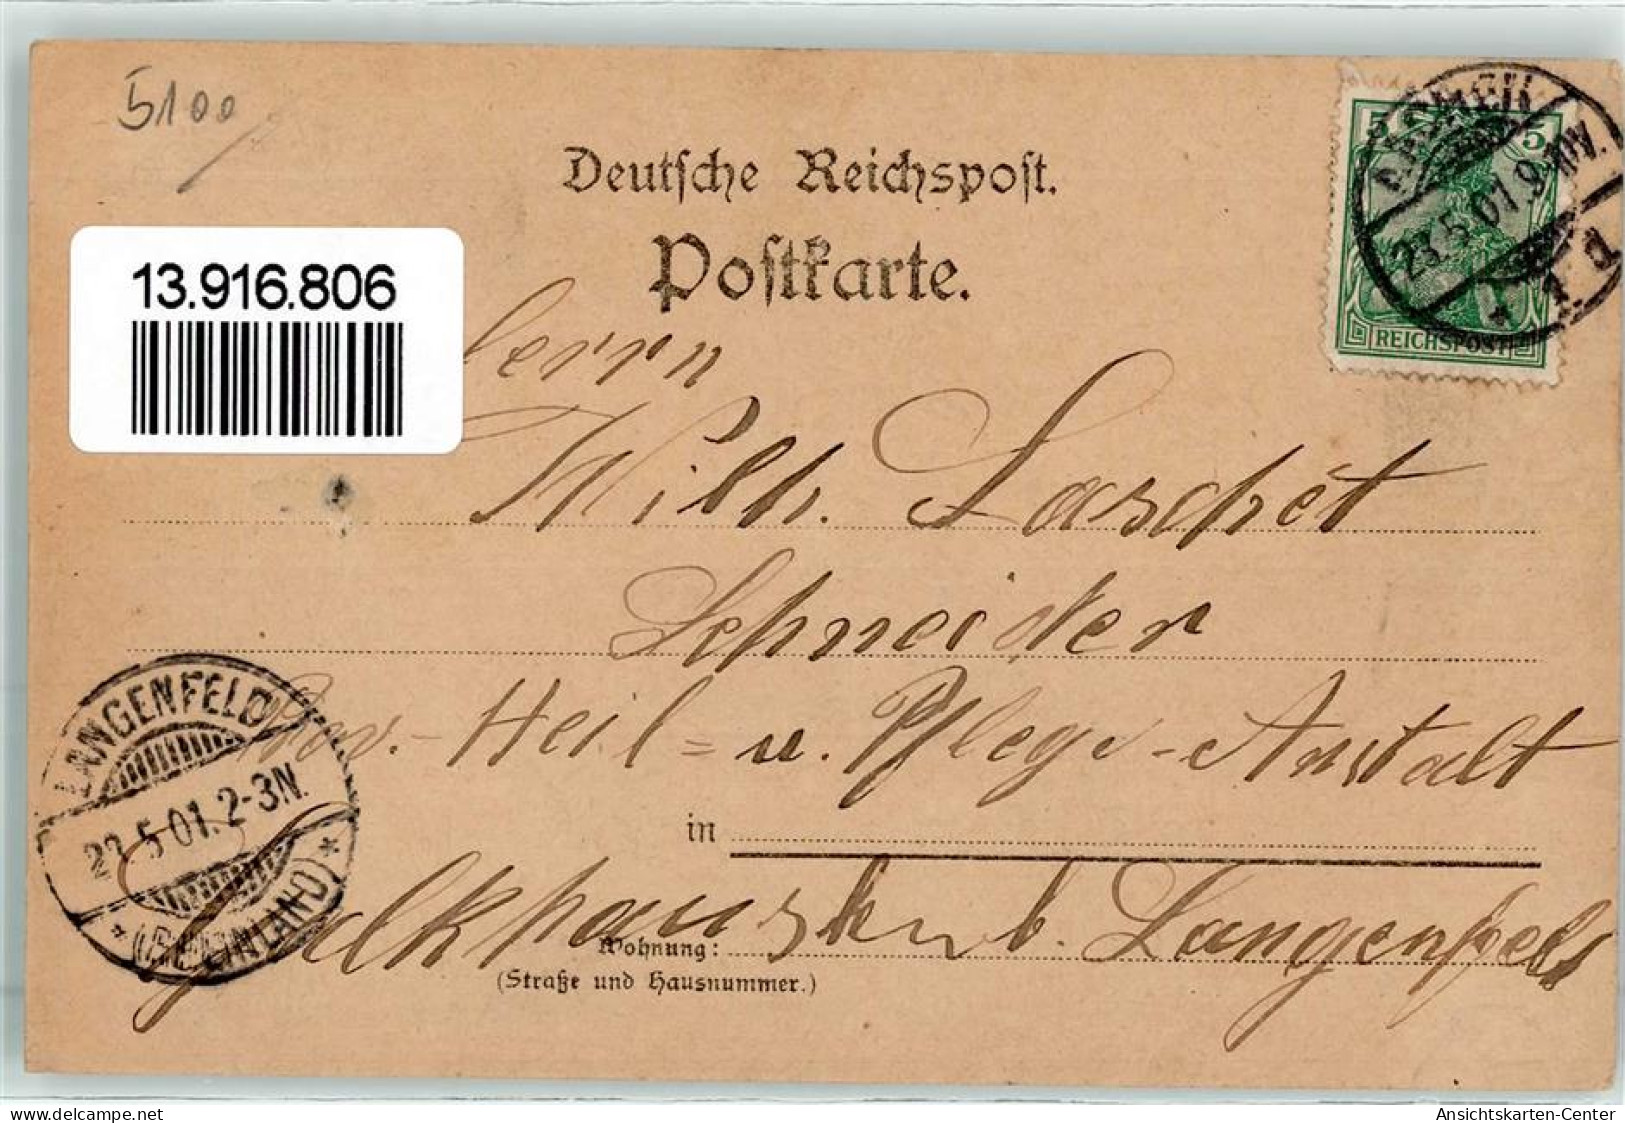 5100
Deutsche Reichspost.
Postkarte.
5 5
REICHSPOST
AACHEN
23.5.01.9-10V.
* 1. d.
13.916.806
Herrn
Wilh. Laschet
Schneider
Prov.- Heil= u. Pflege-Anstalt
in
Galkhausen b. Langenfeld
Wohnung:
(Straße und Hausnummer.)
LANGENFELD
23.5.01.2-3N.
* (RHEINLAND) *
www.delcampe.net
Ansichtskarten-Center